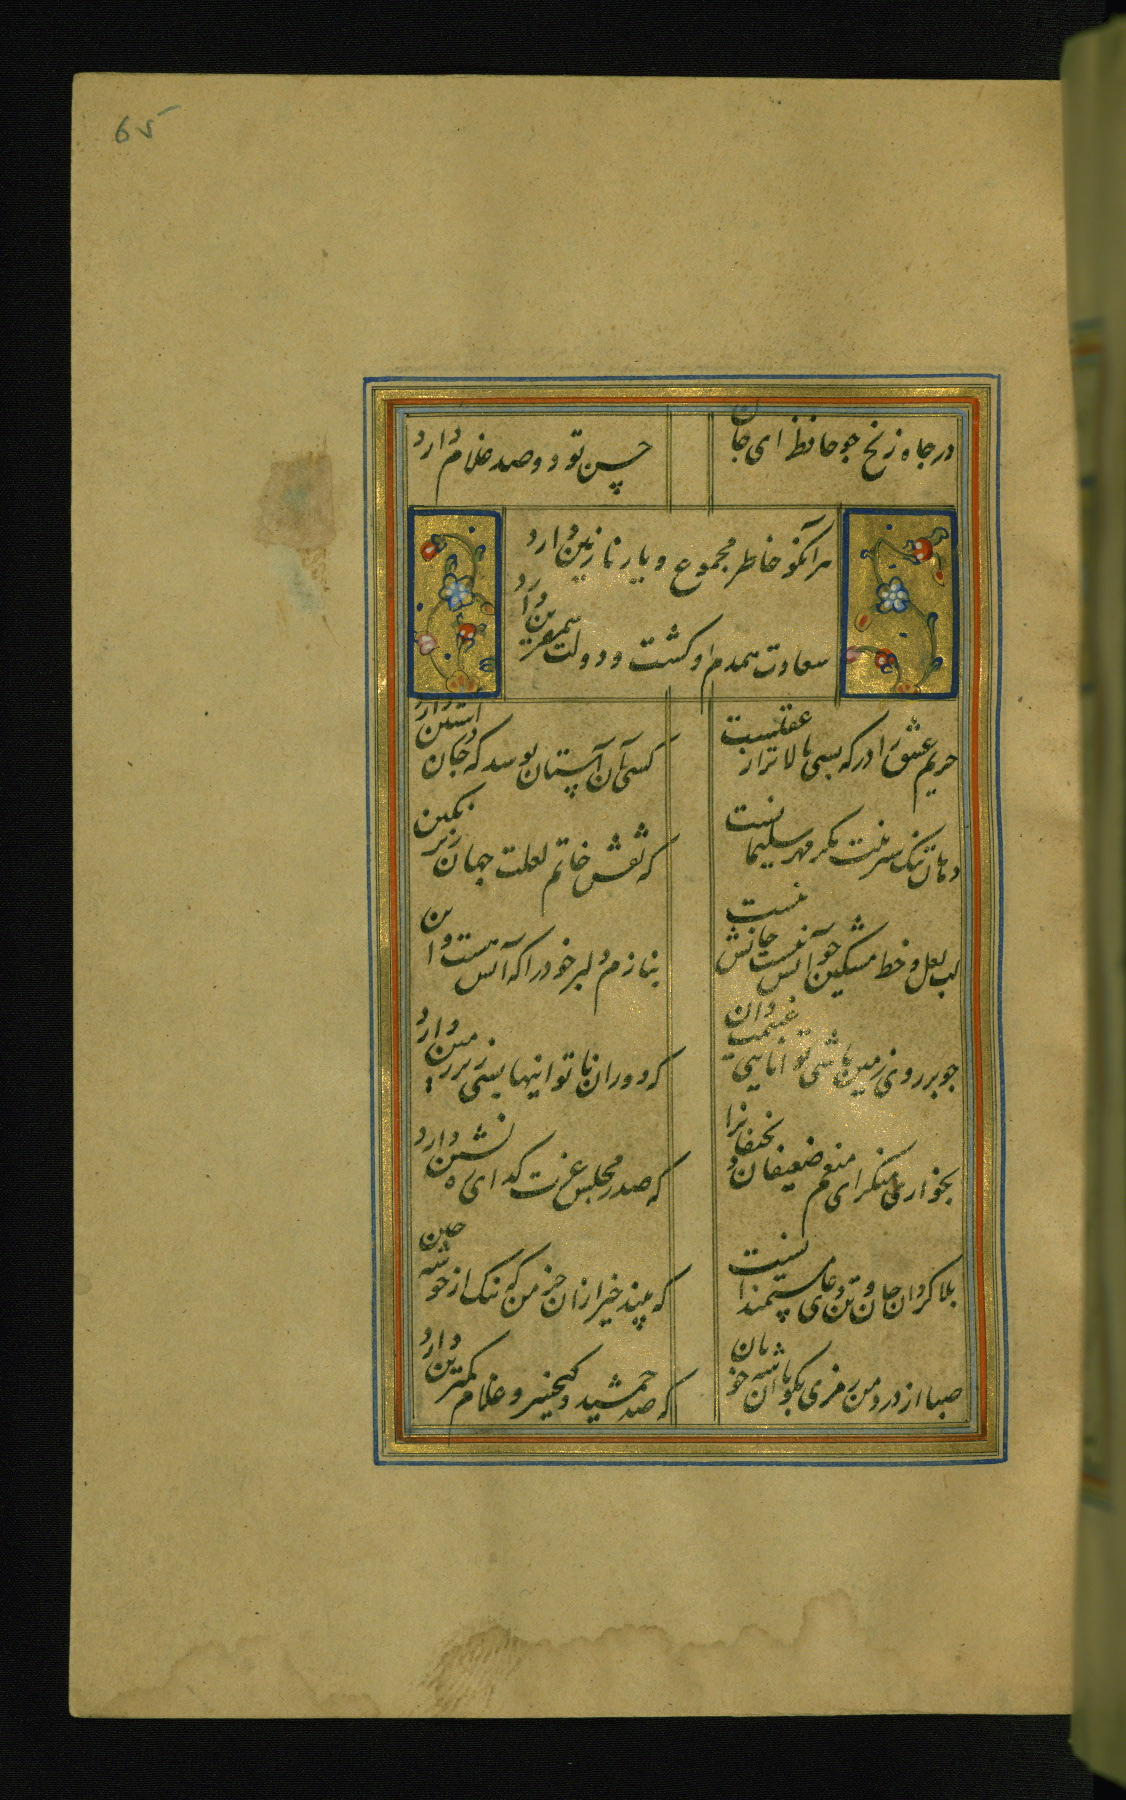 65
در جاه زنخ جو حافظ ای جان
حسن تو دو صد غلام دارد
هر آنکو خاطر مجموع و یار نازنین دارد
سعادت همدم او کشت و دولت همقرین دارد
حریم عشق را درکه بسی بالاتر از عقلست
کسی آن آستان بوسد که جان در آستین دارد
دهان تنک شیرینت مکر مهر سلیمانست
که نقش خاتم لعلت جهان زیر نکین
لب لعل و خط مشکین جو آنش نیست اینش نیست
بنازم دلبر خود را که آنش هست و این
جو بر روی زمین باشی توانایی غنیمت دان
که دوران ناتوانیها بسی زیر زمین دارد
بخواری منکر ای منعم ضعیفان و نحیفانرا
که صدر مجلس عزت کدای ره نشین دارد
بلا کردان جان و تن دعای مستمندانست
که بیند خیر از ان خرمن که ننک از خوشه چین
صبا از درد من رمزی بکو با آن شه خوبان
که صد جمشید و کیخسرو غلام کمترین دارد